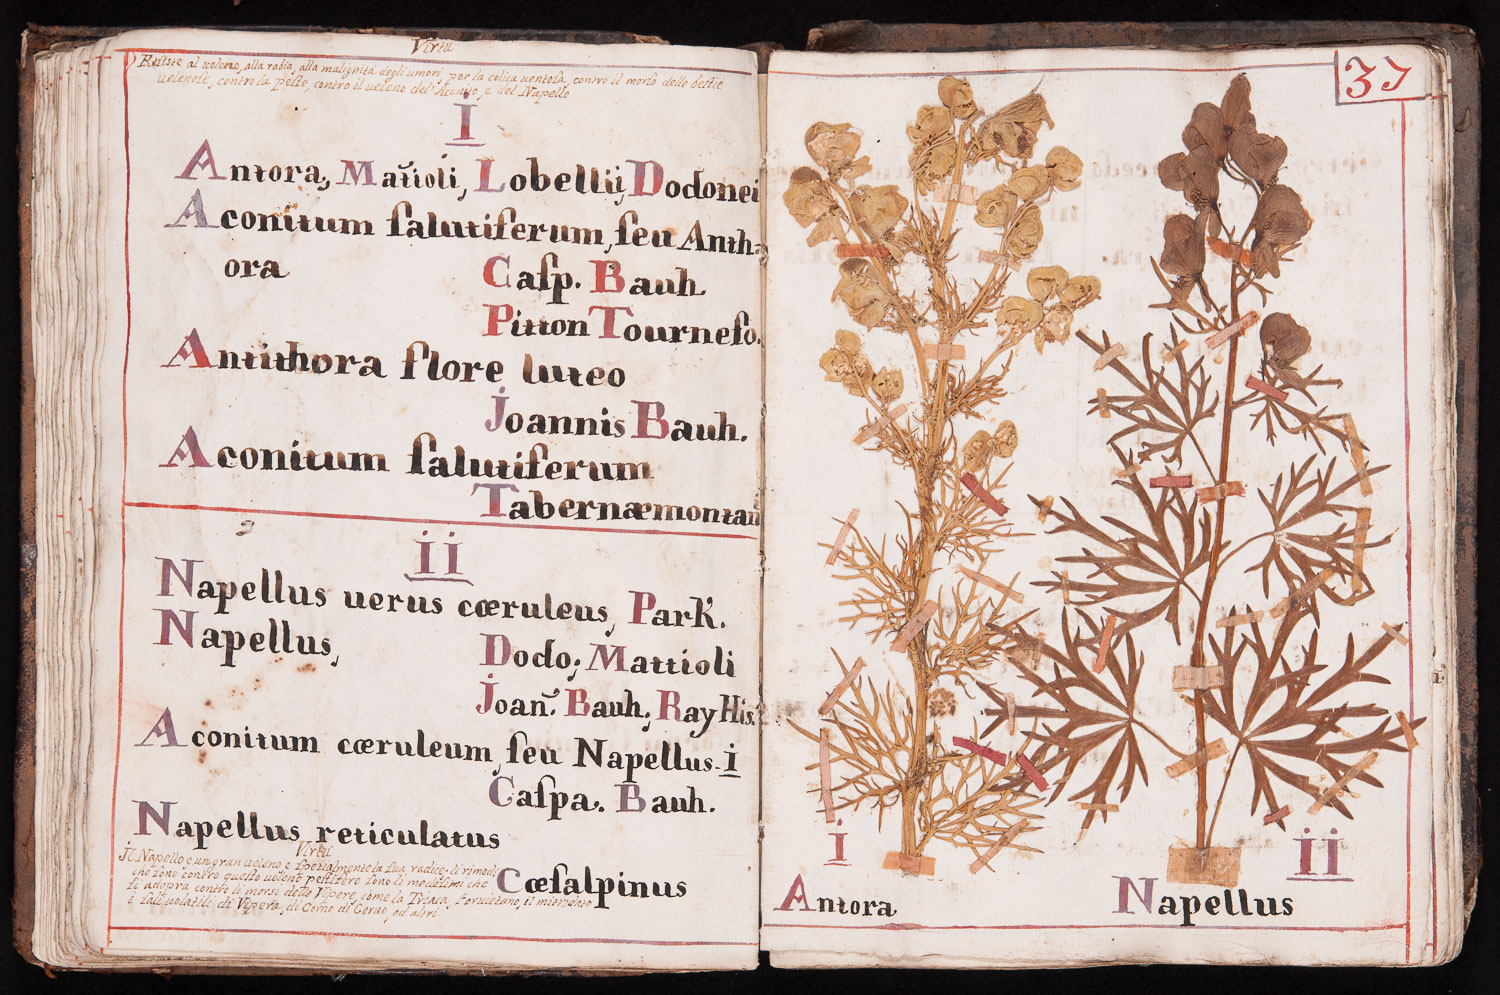 Virtù
Resiste al veleno, alla rabia, alla malignità degli umori, per la colica ventosa, contro il morso delle bestie
velenose, contro la peste, contro il veleno del' Aconito, e del Napello
I
Antora, Matioli, Lobellij, Dodonei
Aconitum ſalutiferum, ſeu Anth:
ora Caſp. Bauh.
Pitton Tourneſo.
Antithora flore luteo
Joannis Bauh.
Aconitum ſalutiferum
Tabernæmontan
ii
Napellus uerus cœruleus, Park.
Napellus, Dodo, Mattioli
Joan. Bauh, Ray His.
Aconitum cœruleum, ſeu Napellus-i
Caſpa. Bauh.
Napellus reticulatus
Virtù
Il Napello è un gran veleno, e spezialmente la sua radice. li rimedi
che sono contro questo veleno pestifero sono li medesimi che
si adopra contro li morsi delle Vipere, come la Triaca, l'orvietano, il mitridato
e sali volatili di Vipera, di Corno di Cervo, ed altri
Cœſalpinus
37
i
Antora
ii
Napellus